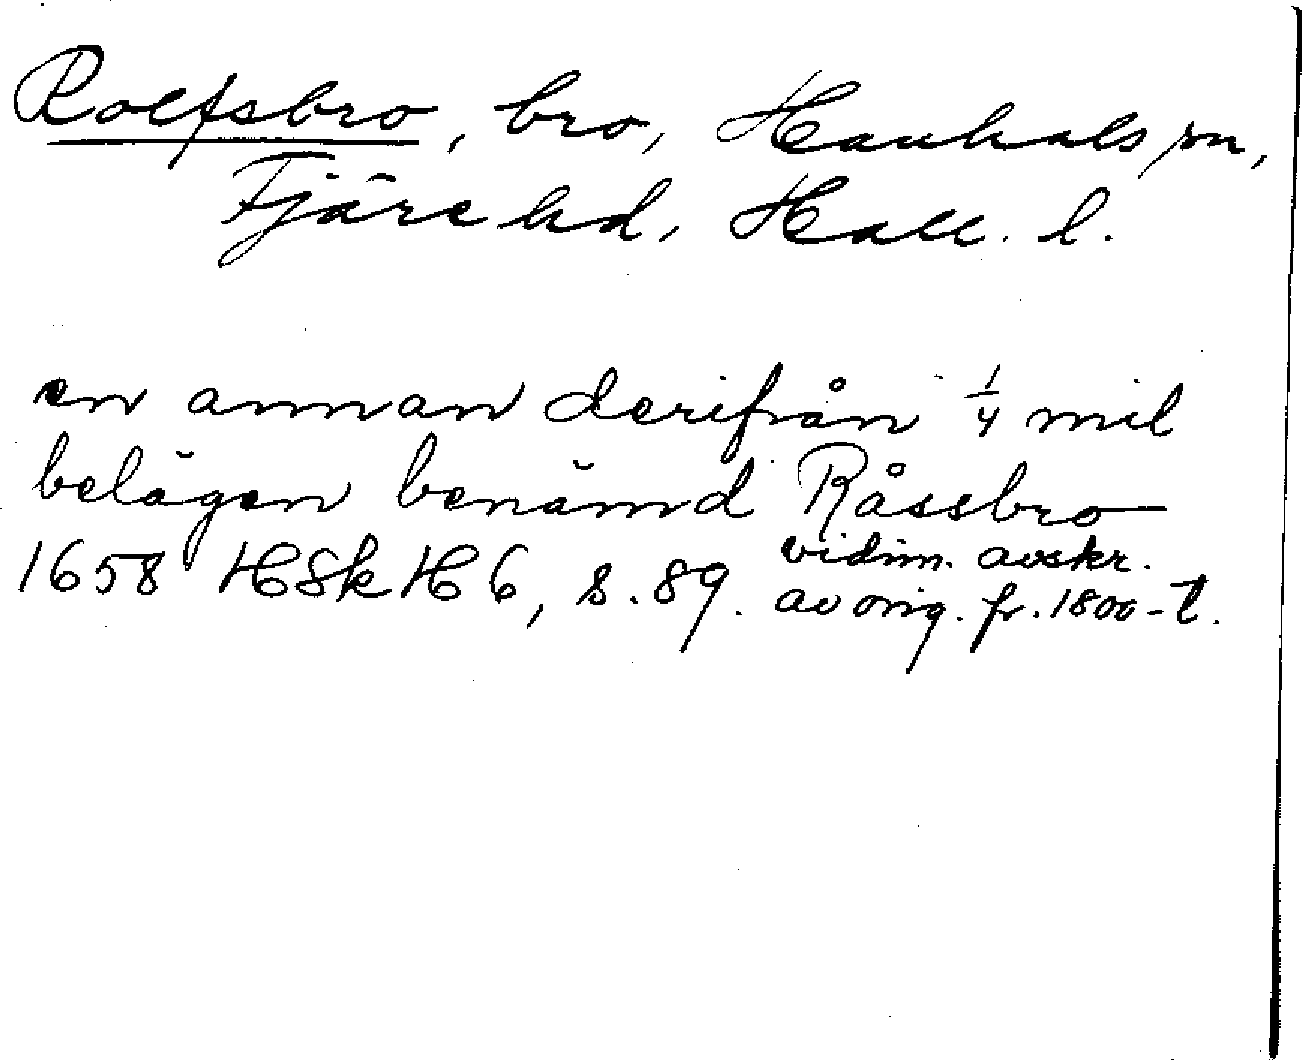 Rolfsbro, bro, Hanhals sn,
Fjäre hd, Hall. l.
en annan derifrån 1/4 mil
belägen benämd Råssbro
1658 HSkH6, s. 89. vidim. avskr.
av orig. fr. 1800-t.